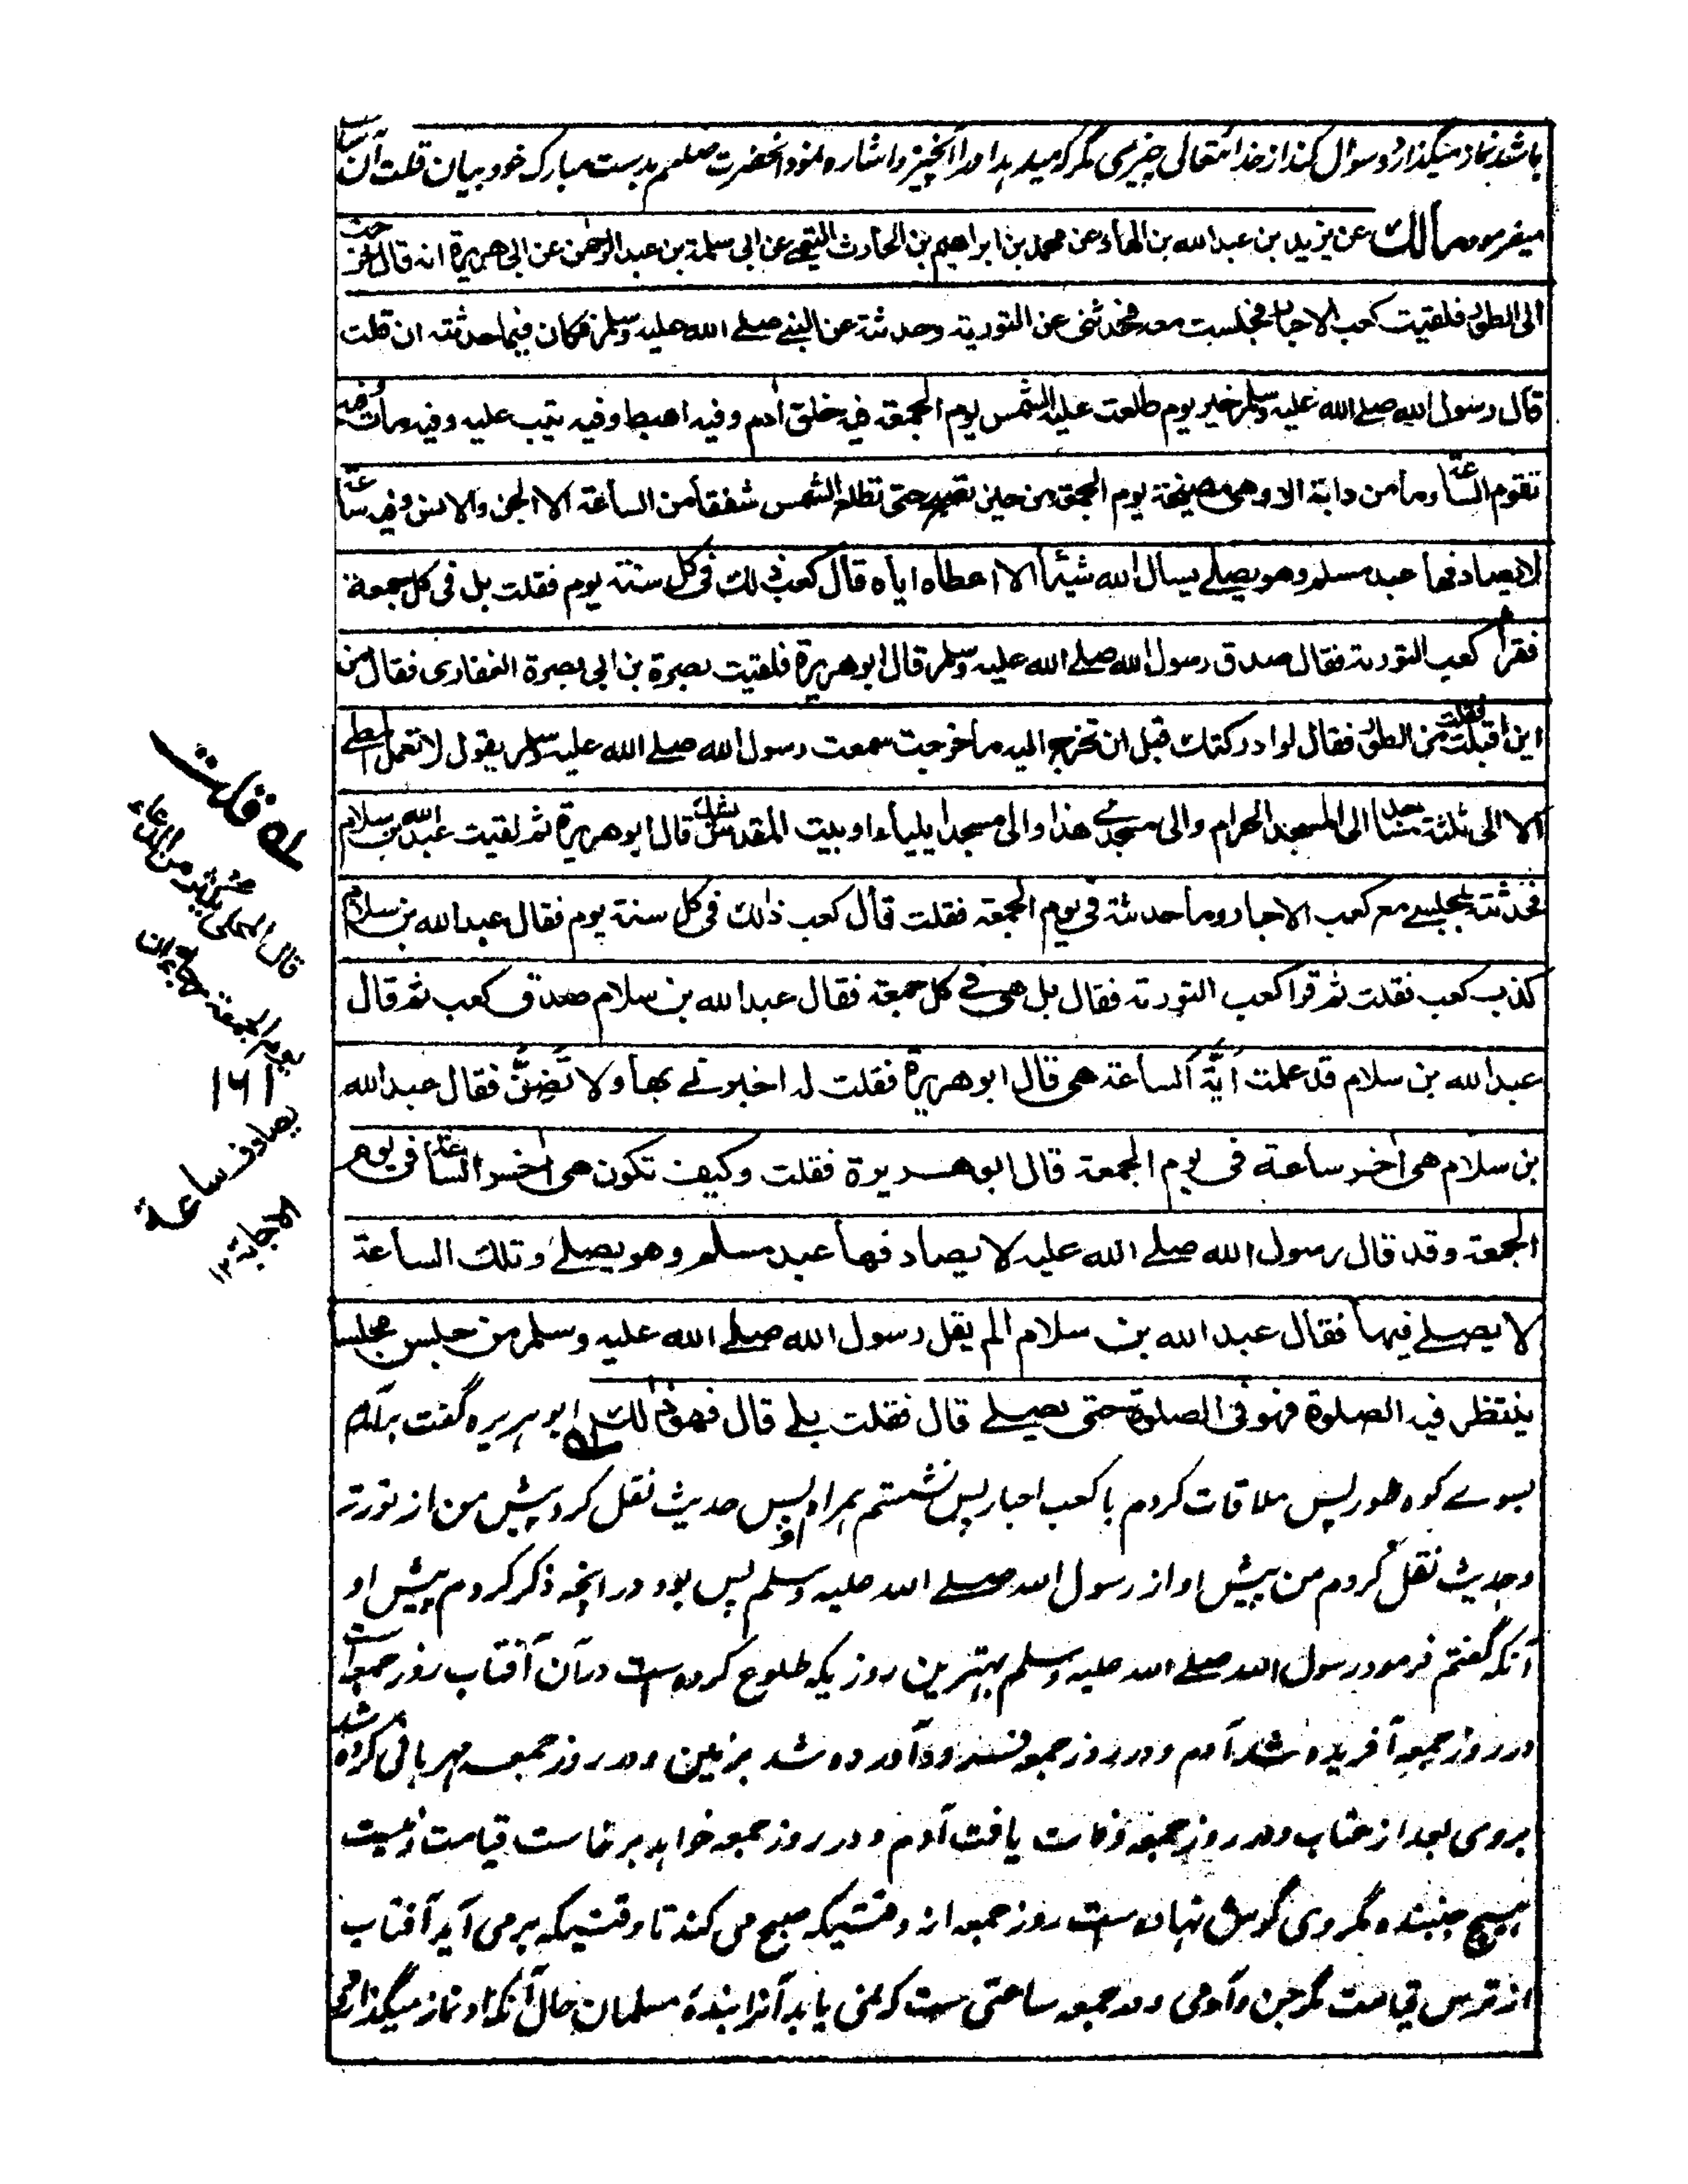 باشد نماز میگذارد و سوال کند از خدا تعالی چیزی مگر که میدهد او را آنچیز و اشاره نمود آنحضرت صلعم بدست مبارک خود بیان قلت آن ساعت
میفرمود مالك عن يزيد بن عبد الله بن الهاد عن محمد بن ابراهيم بن الحارث التيمي عن ابي سلمة بن عبد الرحمن عن ابي هريرة انه قال خرجت
الى الطور فلقيت كعب الاحبار فجلست معه فحدثني عن التورية وحدثته عن النبي صلے الله عليه وسلم فكان فيما حدثته ان قلت
قال رسول الله صلے الله عليه وسلم خير يوم طلعت عليه الشمس يوم الجمعة فيه خلق ادم وفيه اهبط وفيه تيب عليه وفيه مات وفيه
تقوم الساعة وما من دابة الا وهي مصيخة يوم الجمعة من حين تصبح حتى تطلع الشمس شفقا من الساعة الا الجن والانس وفيه ساعة
لا يصادفها عبد مسلم وهو يصلے يسال الله شيئا الا اعطاه اياه قال كعب ذلك فى كل سنة يوم فقلت بل فى كل جمعة
فقرأ كعب التورية فقال صدق رسول الله صلے الله عليه وسلم قال ابو هريرة فلقيت بصرة بن ابي بصرة الغفارى فقال من
اين اقبلت فقلت من الطور فقال لو ادركتك قبل ان تخرج اليه ما خرجت سمعت رسول الله صلے الله عليه وسلم يقول لا تعمل المطے
الا الى ثلثة مساجد الى المسجد الحرام والى مسجدے هذا والى مسجد ايلياء او بيت المقدس يشك قال ابو هريرة ثم لقيت عبد الله بن سلام
فحدثته بمجلسے مع كعب الاحبار وما حدثته فى يوم الجمعة فقلت قال كعب ذلك فى كل سنة يوم فقال عبد الله بن سلام
كذب كعب فقلت ثم قرا كعب التورية فقال بل هى فے كل جمعة فقال عبد الله بن سلام صدق كعب ثم قال
عبد الله بن سلام قد علمت اَيَّةُ الساعة هى قال ابو هريرة فقلت له اخبرنے بها ولا تَضِنُّ فقال عبد الله
بن سلام هى اٰخر ساعة فى يوم الجمعة قال ابو هريرة فقلت وكيف تكون هى اٰخر الساعة فى يوم
الجمعة وقد قال رسول الله صلے الله عليه لا يصادفها عبد مسلم وهو يصلے وتلك الساعة
لا يصلے فيها فقال عبد الله بن سلام الم يقل رسول الله صلے الله عليه وسلم من جلس مجلسا
ينتظر فيه الصلوة فهو فى الصلوة حتى يصلے قال فقلت بلے قال فهو ذلك ابو هریره گفت برآمدم
بسوے کوه طور پس ملاقات کردم با کعب احبار پس نشستم همراه او پس حدیث نقل کرد پیش من از توریة
و حدیث نقل کردم من پیش او از رسول الله صلے الله علیه وسلم پس بود در آنچه ذکر کردم پیش او
آنکه گفتم فرمود رسول الله صلے الله علیه وسلم بهترین روزیکه طلوع کرده ست در آن آفتاب روز جمعه است
در روز جمعه آفریده شد آدم و در روز جمعه فرود آورده شد بزمین و در روز جمعه مهربانی کرده شد
بروی بعد از عتاب و در روز جمعه وفات یافت آدم و در روز جمعه خواهد برخاست قیامت و نیست
هیچ جنبنده مگر وی گوش نهاده ست روز جمعه از وقتیکه صبح می کند تا وقتیکه برمی آید آفتاب
از ترس قیامت مگر جن و آدمی و در جمعه ساعتی ست که نمی یابد آنرا بنده مسلمان حال آنکه او نماز میگذارد
له قلت
يوم الجمعة
يصادف ساعة
الاجابة ۱۲
۱۶۱